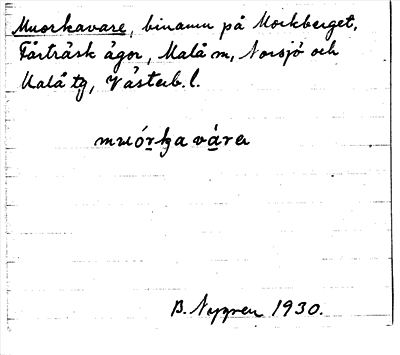 Muorkavare, binamn på Morkberget,
Fårträsk ägor, Malå m, Norsjö och
Malå tg, Västerb. l.
muórka váre
B. Nygren 1930.